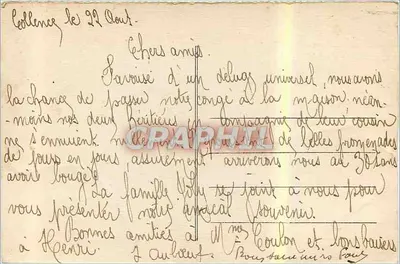 Collences le 22 Août.
Chers amis.
Favorisé d'un déluge universel, nous avons
la chance de passer notre congé à la maison, néan-
moins nos deux héritiers en compagnie de leur cousin
ne s'ennuient de belles promenades
de jours en jours assurément arriverons nous au 30 sans
avoir bougé?
La famille Joly se joint à nous pour
vous présenter notre amical souvenir.
Bonnes amitiés à Mme Coulon et bons baisers
à Henri.
CPAPHIL